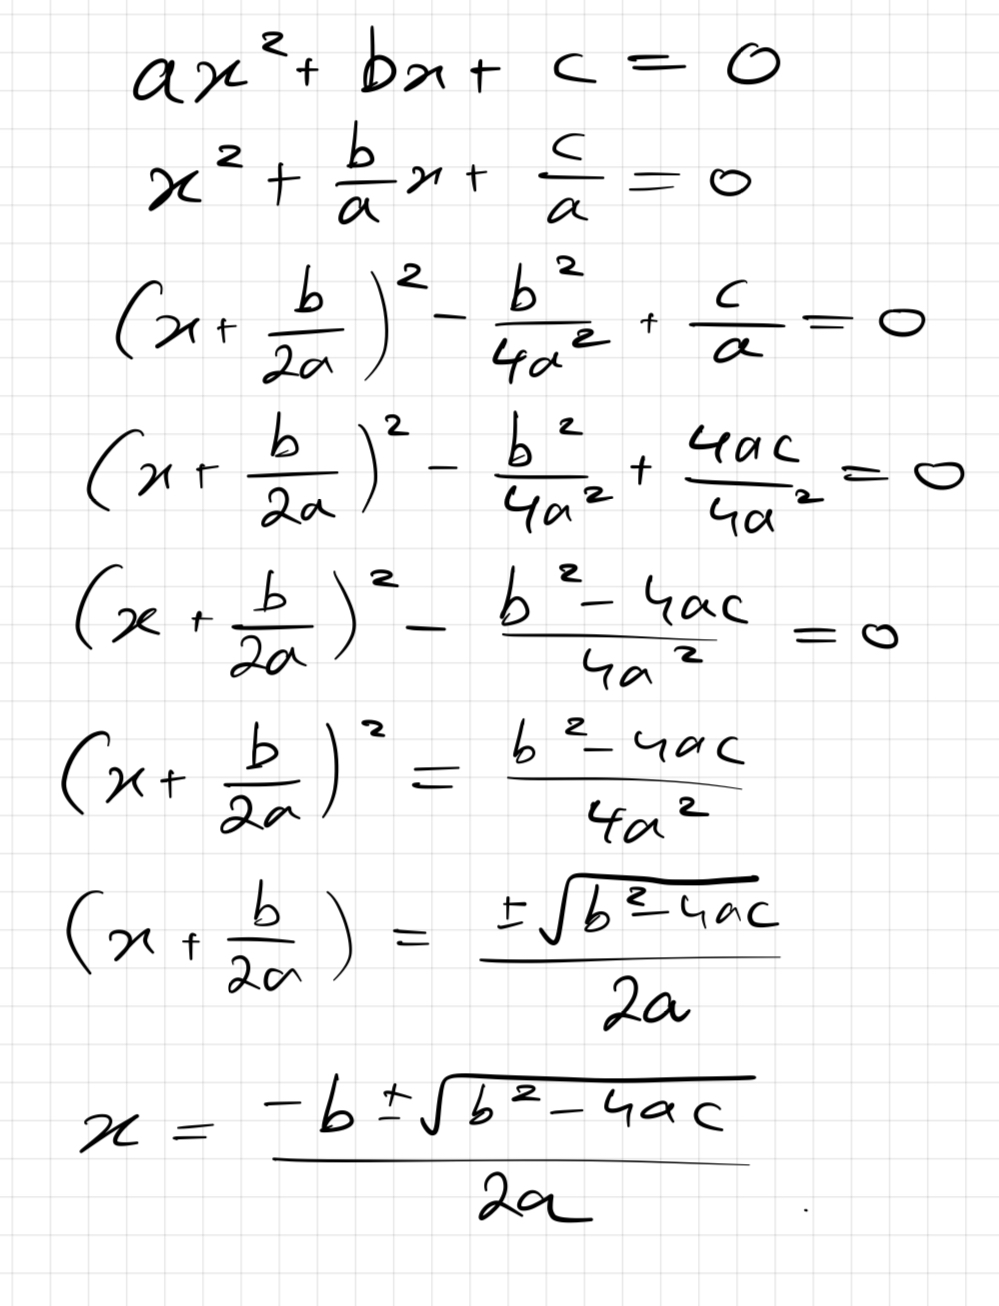 ax² + bx + c = 0
x² + b/a x + c/a = 0
(x + b/2a)² - b²/4a² + c/a = 0
(x + b/2a)² - b²/4a² + 4ac/4a² = 0
(x + b/2a)² - (b² - 4ac)/4a² = 0
(x + b/2a)² = (b² - 4ac)/4a²
(x + b/2a) = ±√(b² - 4ac)/2a
x = (-b ± √(b² - 4ac))/2a .